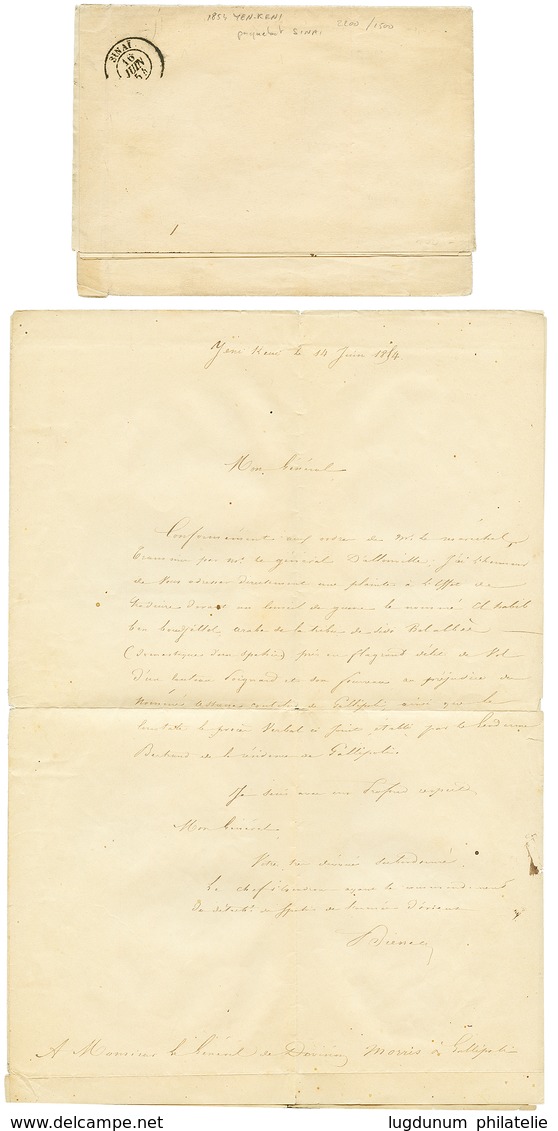 1854 YEN-KENI 2200/1500
paquebot SINAI
SINAI
16
JUIN
54
Yeni Keni le 14 Juin 1854.
Mon Général
Conformément aux ordres de Mr. le maréchal,
transmis par Mr. le général D'allonville, J'ai l'honneur
de Vous adresser directement une plainte à l'effet de
traduire devant un Conseil de guerre le nommé
arabe de la tribu de
(domestique d'un spahis) pris en flagrant délit de Vol
d'un au préjudice du
nommé de Gallipoli, ainsi que le
Constate le procès Verbal ci joint établi par le Gendarme
Bertrand de la résidence de Gallipoli.
Je suis avec un profond respect
Mon Général
Votre très dévoué subordonné.
Le chef d'escadron ayant le commandement
du détacht. de Spahis de l'armée d'orient
A Monsieur le Général de Division Morris à Gallipoli
lugdunum philatelie